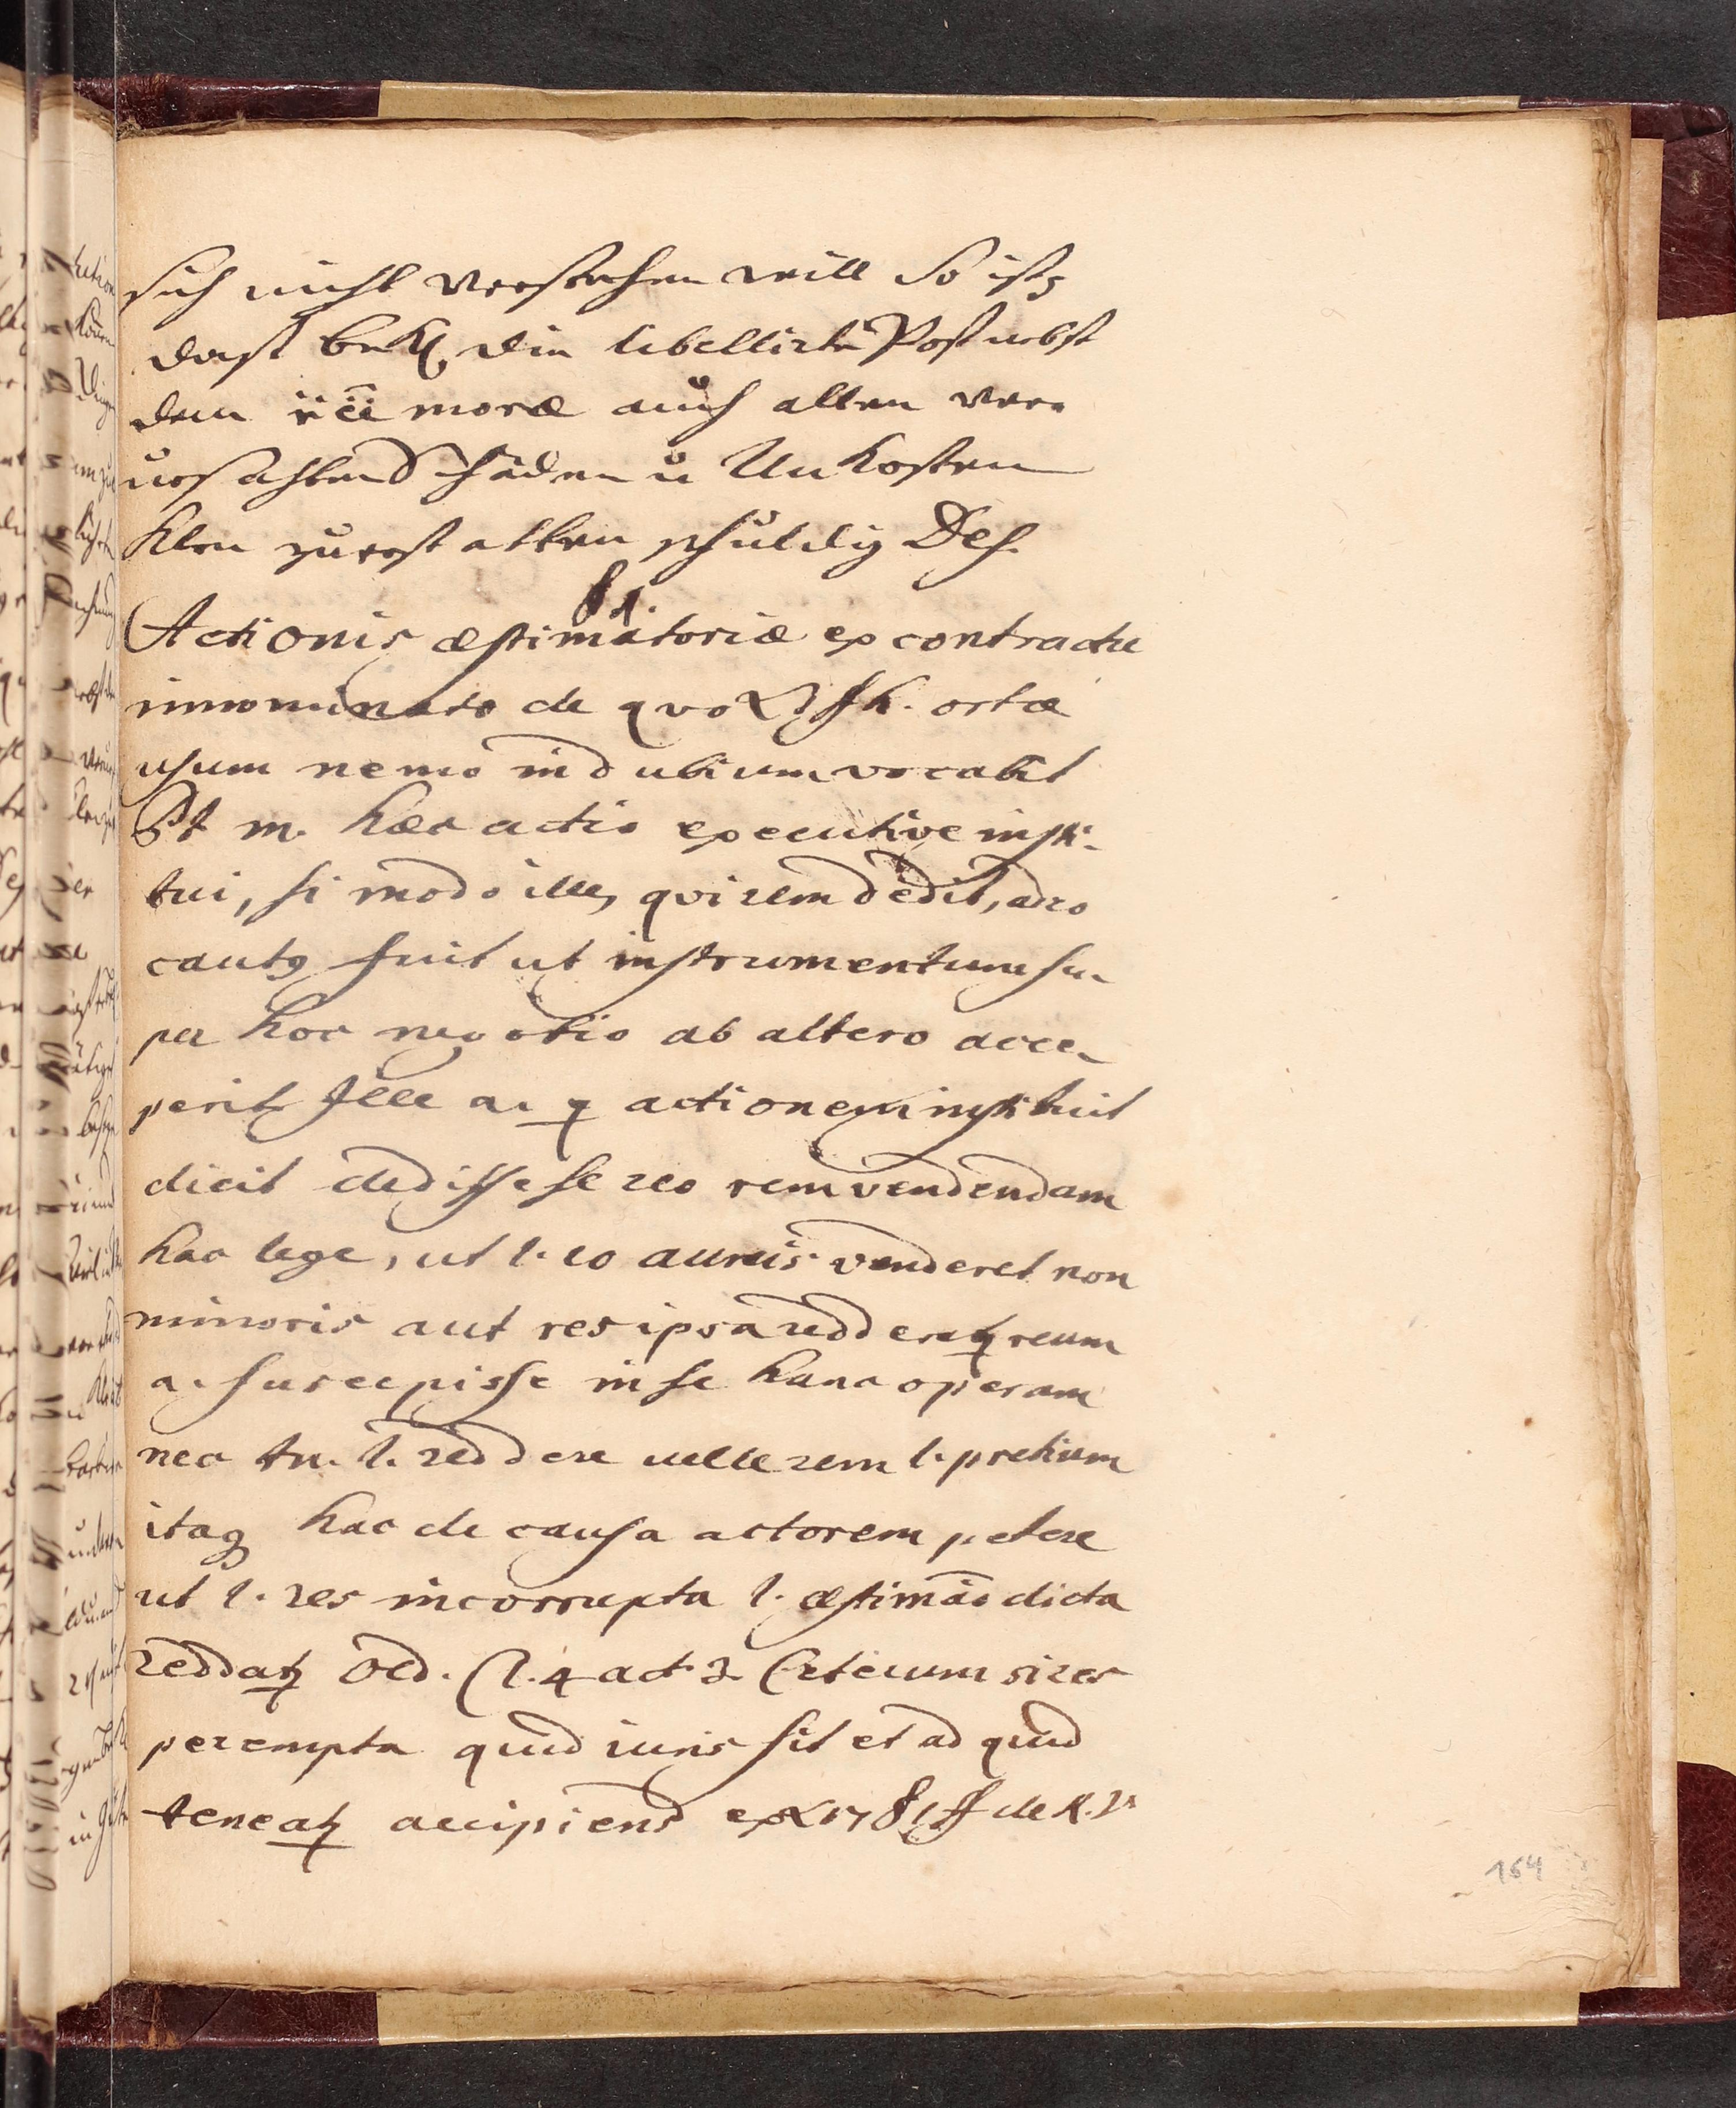 sich nicht verstehen will So ists
dast bekl die libellirte Post nebst
den üēii moræ auch allen ver-
ursachten Schäden u Unkosten
Klen zuerstatten schuldig Def.
§ 1.
Actionis æstimatoriæ ex contractu
innominato de quo h. ortæ
usum nemo in dubium vocabit
Pt m. hæc actio executive insti-
tui, si modo ille, qui rem dedit, adeo
cautq fuit ut instrumentum su-
per hoc negotio ab altero acce-
perit Ille a. q actionem instituit
dicit dedisse se reo rem vendendam
hac lege, ut l. 10 aureis venderet non
minoris aut res ipsa redderetq reum
a. suscepisse in se hanc operam
nec tn. l. reddere velle rem l. pretium
itaq hac de causa actorem petere
ut l. res incorrupta l. æstimāo dicta
reddatq Old. cl. 4 act. 3. Cæterum si res
perempta quid iuris sit et ad quid
teneatq accipiens ex 17 § 1 ff de
164